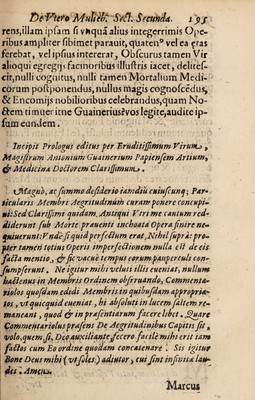 De Vtero Mulieb. Sect. Secunda. 195
rens, illam ipsam si vnquā alius integerrimis Ope-
ribus ampliter sibimet parauit, quatenꝰ vel ea ętas
ferebat, vel ipsius intererat, Obscurus tamen Vir
alioqui egregijs facinoribus illustris iacet, delites-
cit, nulli cognitus, nulli tamen Mortalium Medi-
corum postponendus, nullus magis cognoscēdus,
& Encomijs nobilioribus celebrandus, quam No-
stem tinuer itne Guaineriusēvos legite, audite ip-
sum eundem.
Incipit Prologus editus per Eruditissimum Virum,
Magistrum Antonium Guainerium Papiensem Artium,
& Medicina Doctorem Clarissimum.
Magno, ac summo desiderio iamdiu cuiuscunq; Par-
ticularis Membri Aegritudinum curam ponere concupi-
ui: Sed Clarissimi quidam, Antiqui Viri me cantum red-
diderunt sub Morte praeuenti inchoata Opera finire ne-
quiuerunt: Vnde si quid perfectum erat, Nihil supra: pro-
pter tamen totius Operis imperfectionem nulla est de eis
facta mentio, & sic vacuè tempus eorum pauperculi con-
sumpserunt. Ne igitur mihi veluti illis eueniat, nullum
hactenus in Membris Ordinem obseruando, Commenta-
riolos quosdam edidi Membris in quibusdam appropria-
tos, vt quicquid eueniat, hi absoluti in lucem saltem re-
maneant, quod & in praesentiarum facere libet. Quare
Commentariolus praesens De Aegritudinibus Capitis sit
volo, quem si, Deo auxiliante, fecero facile mihi erit iam
factos cum Eo ordine quodam concatenare. Sis igitur
Bone Deus mihi (vt soles) adiutor, cui sint infinita lau-
des. Amen.
Marcus